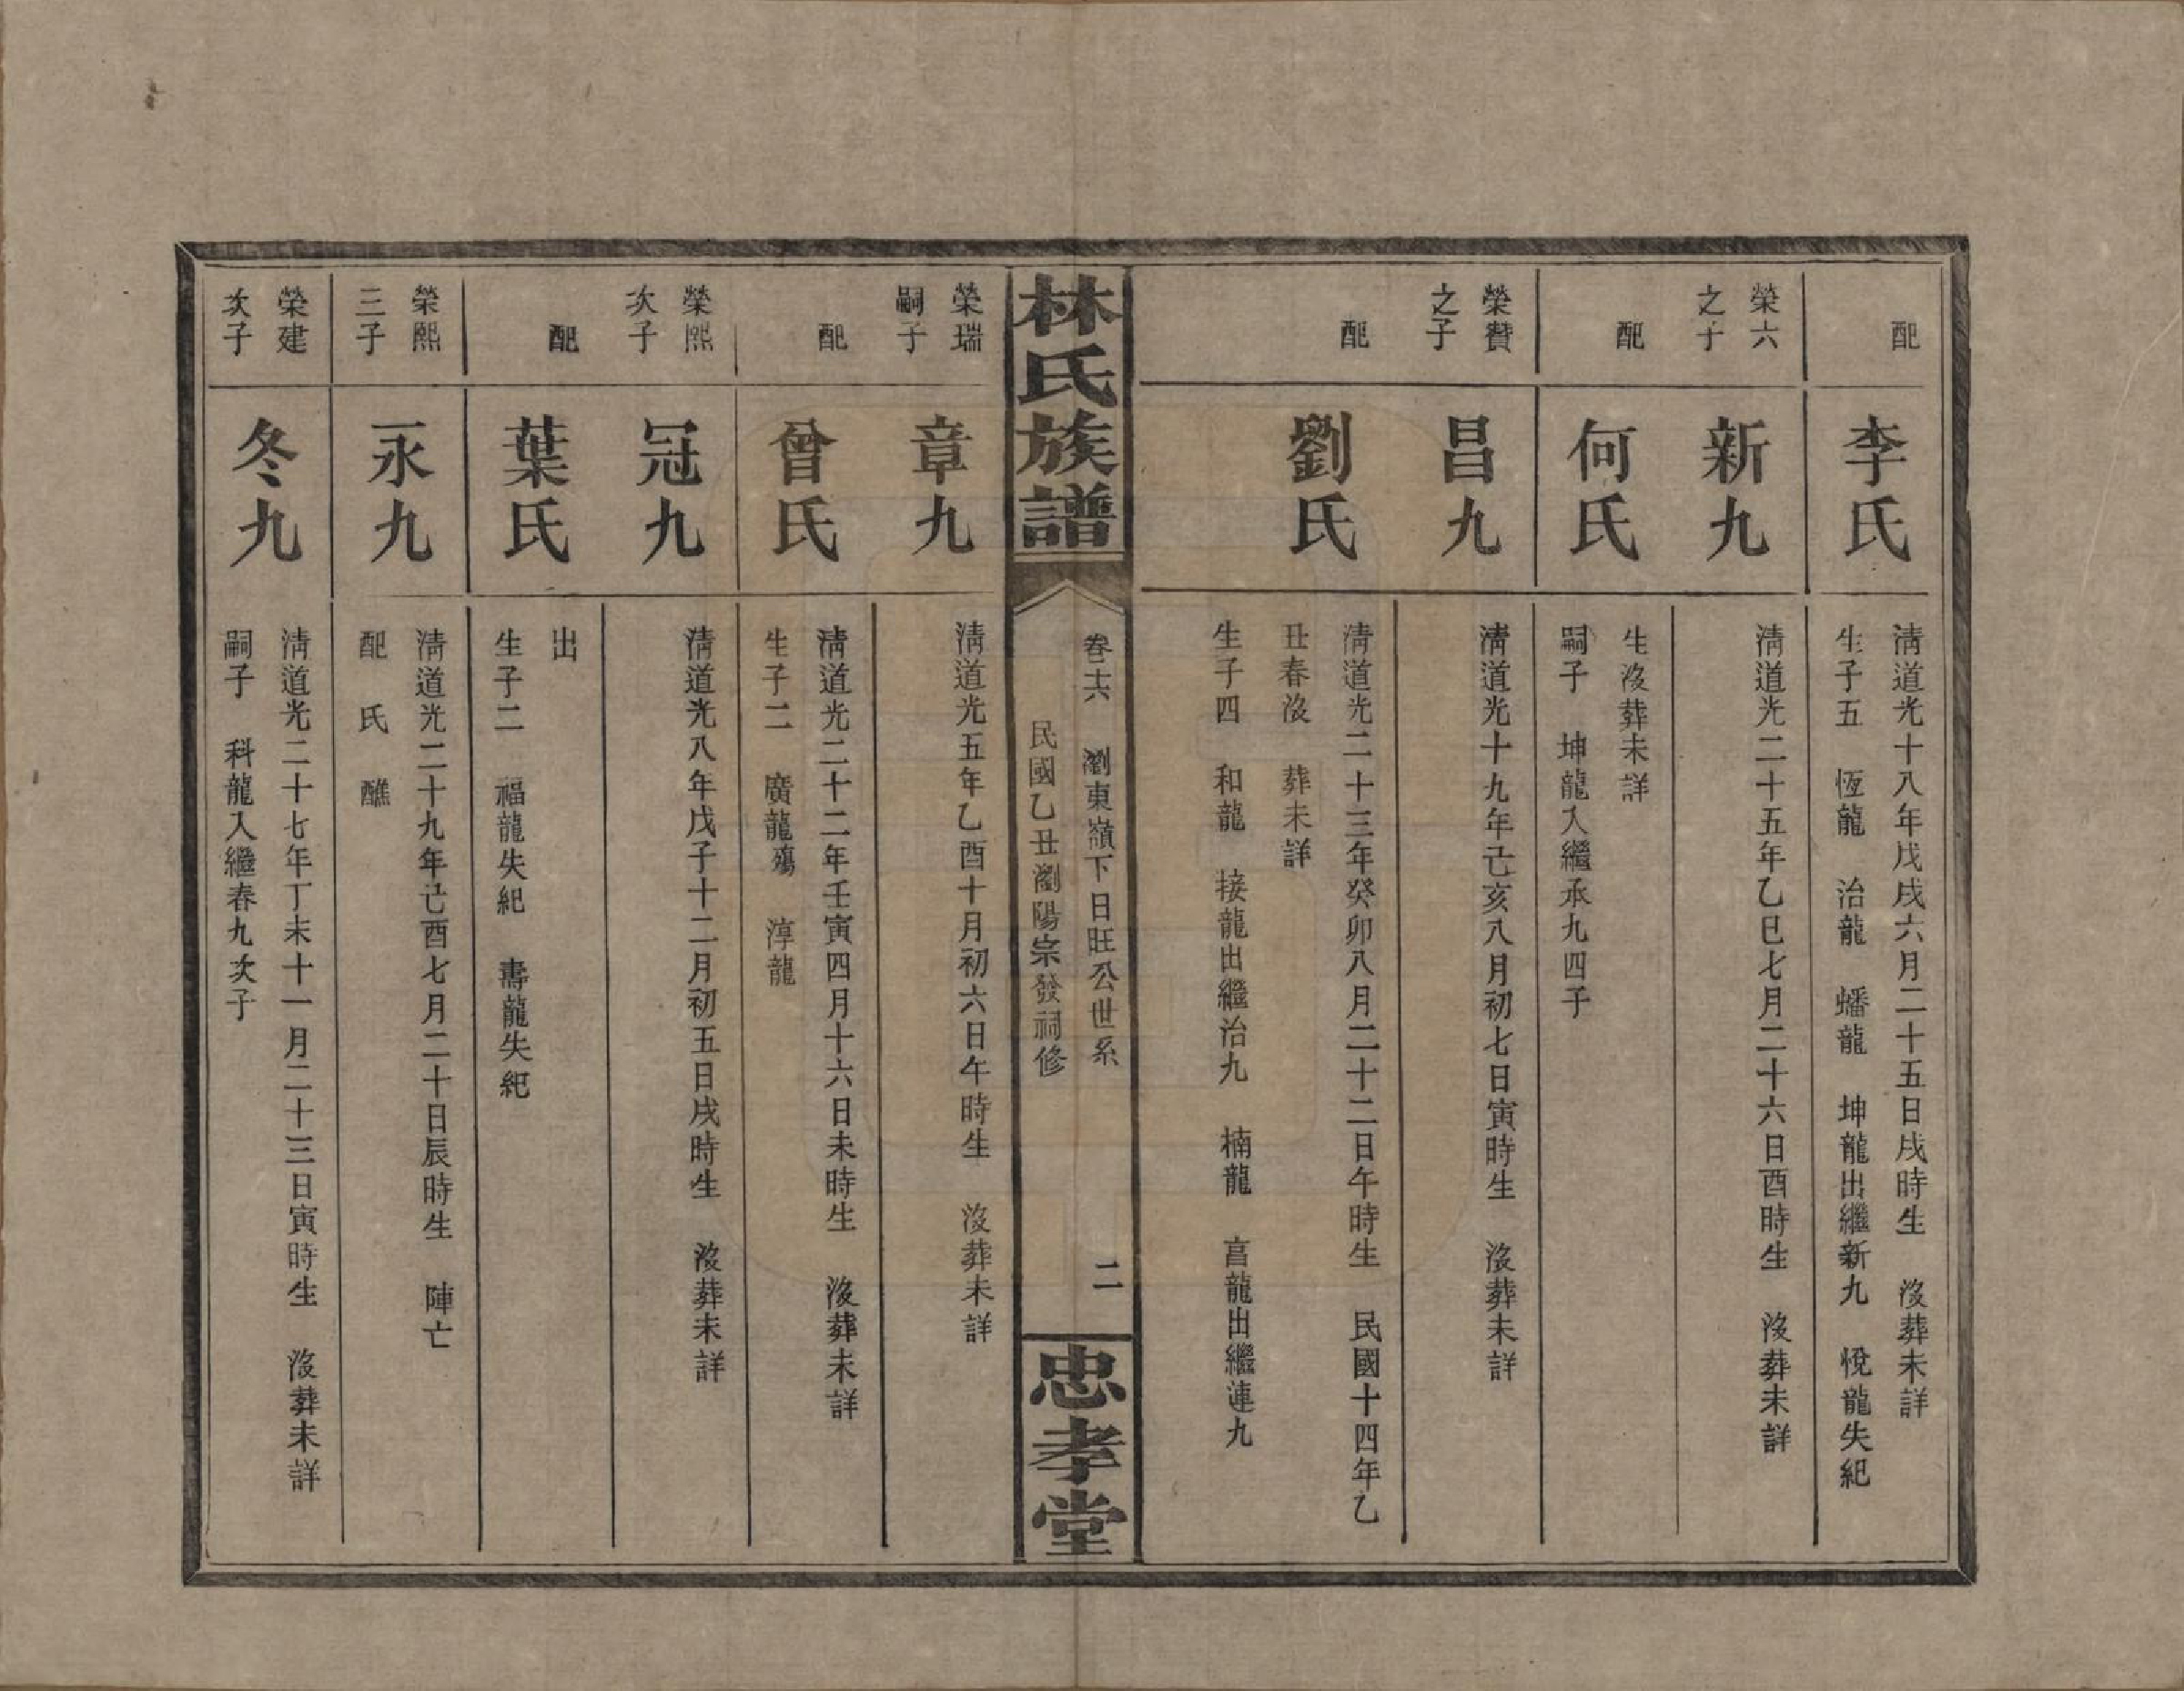 配
李氏
清道光十八年戊戌六月二十五日戌時生　沒葬未詳
生子五　恆龍　治龍　蟠龍　坤龍出繼新九　悅龍失紀
榮六
之子
新九
清道光二十五年乙巳七月二十六日酉時生　沒葬未詳
配
何氏
生沒葬未詳
嗣子　坤龍入繼承九四子
榮贊
之子
昌九
清道光十九年己亥八月初七日寅時生　沒葬未詳
配
劉氏
清道光二十三年癸卯八月二十二日午時生　民國十四年乙
丑春沒　葬未詳
生子四　和龍　接龍出繼治九　楠龍　亯龍出繼連九
林氏族譜
卷十六　瀏東嶺下日旺公世系　二
民國乙丑瀏陽宗發祠修
忠孝堂
榮瑞
嗣子
章九
清道光五年乙酉十月初六日午時生　沒葬未詳
配
曾氏
清道光二十二年壬寅四月十六日未時生　沒葬未詳
生子二　廣龍殤　淳龍
榮熙
次子
冠九
清道光八年戊子十二月初五日戌時生　沒葬未詳
配
葉氏
出
生子二　福龍失紀　壽龍失紀
榮熙
三子
永九
清道光二十九年己酉七月二十日辰時生　陣亡
配　氏　醮
榮建
次子
冬九
清道光二十七年丁未十一月二十三日寅時生　沒葬未詳
嗣子　科龍入繼春九次子